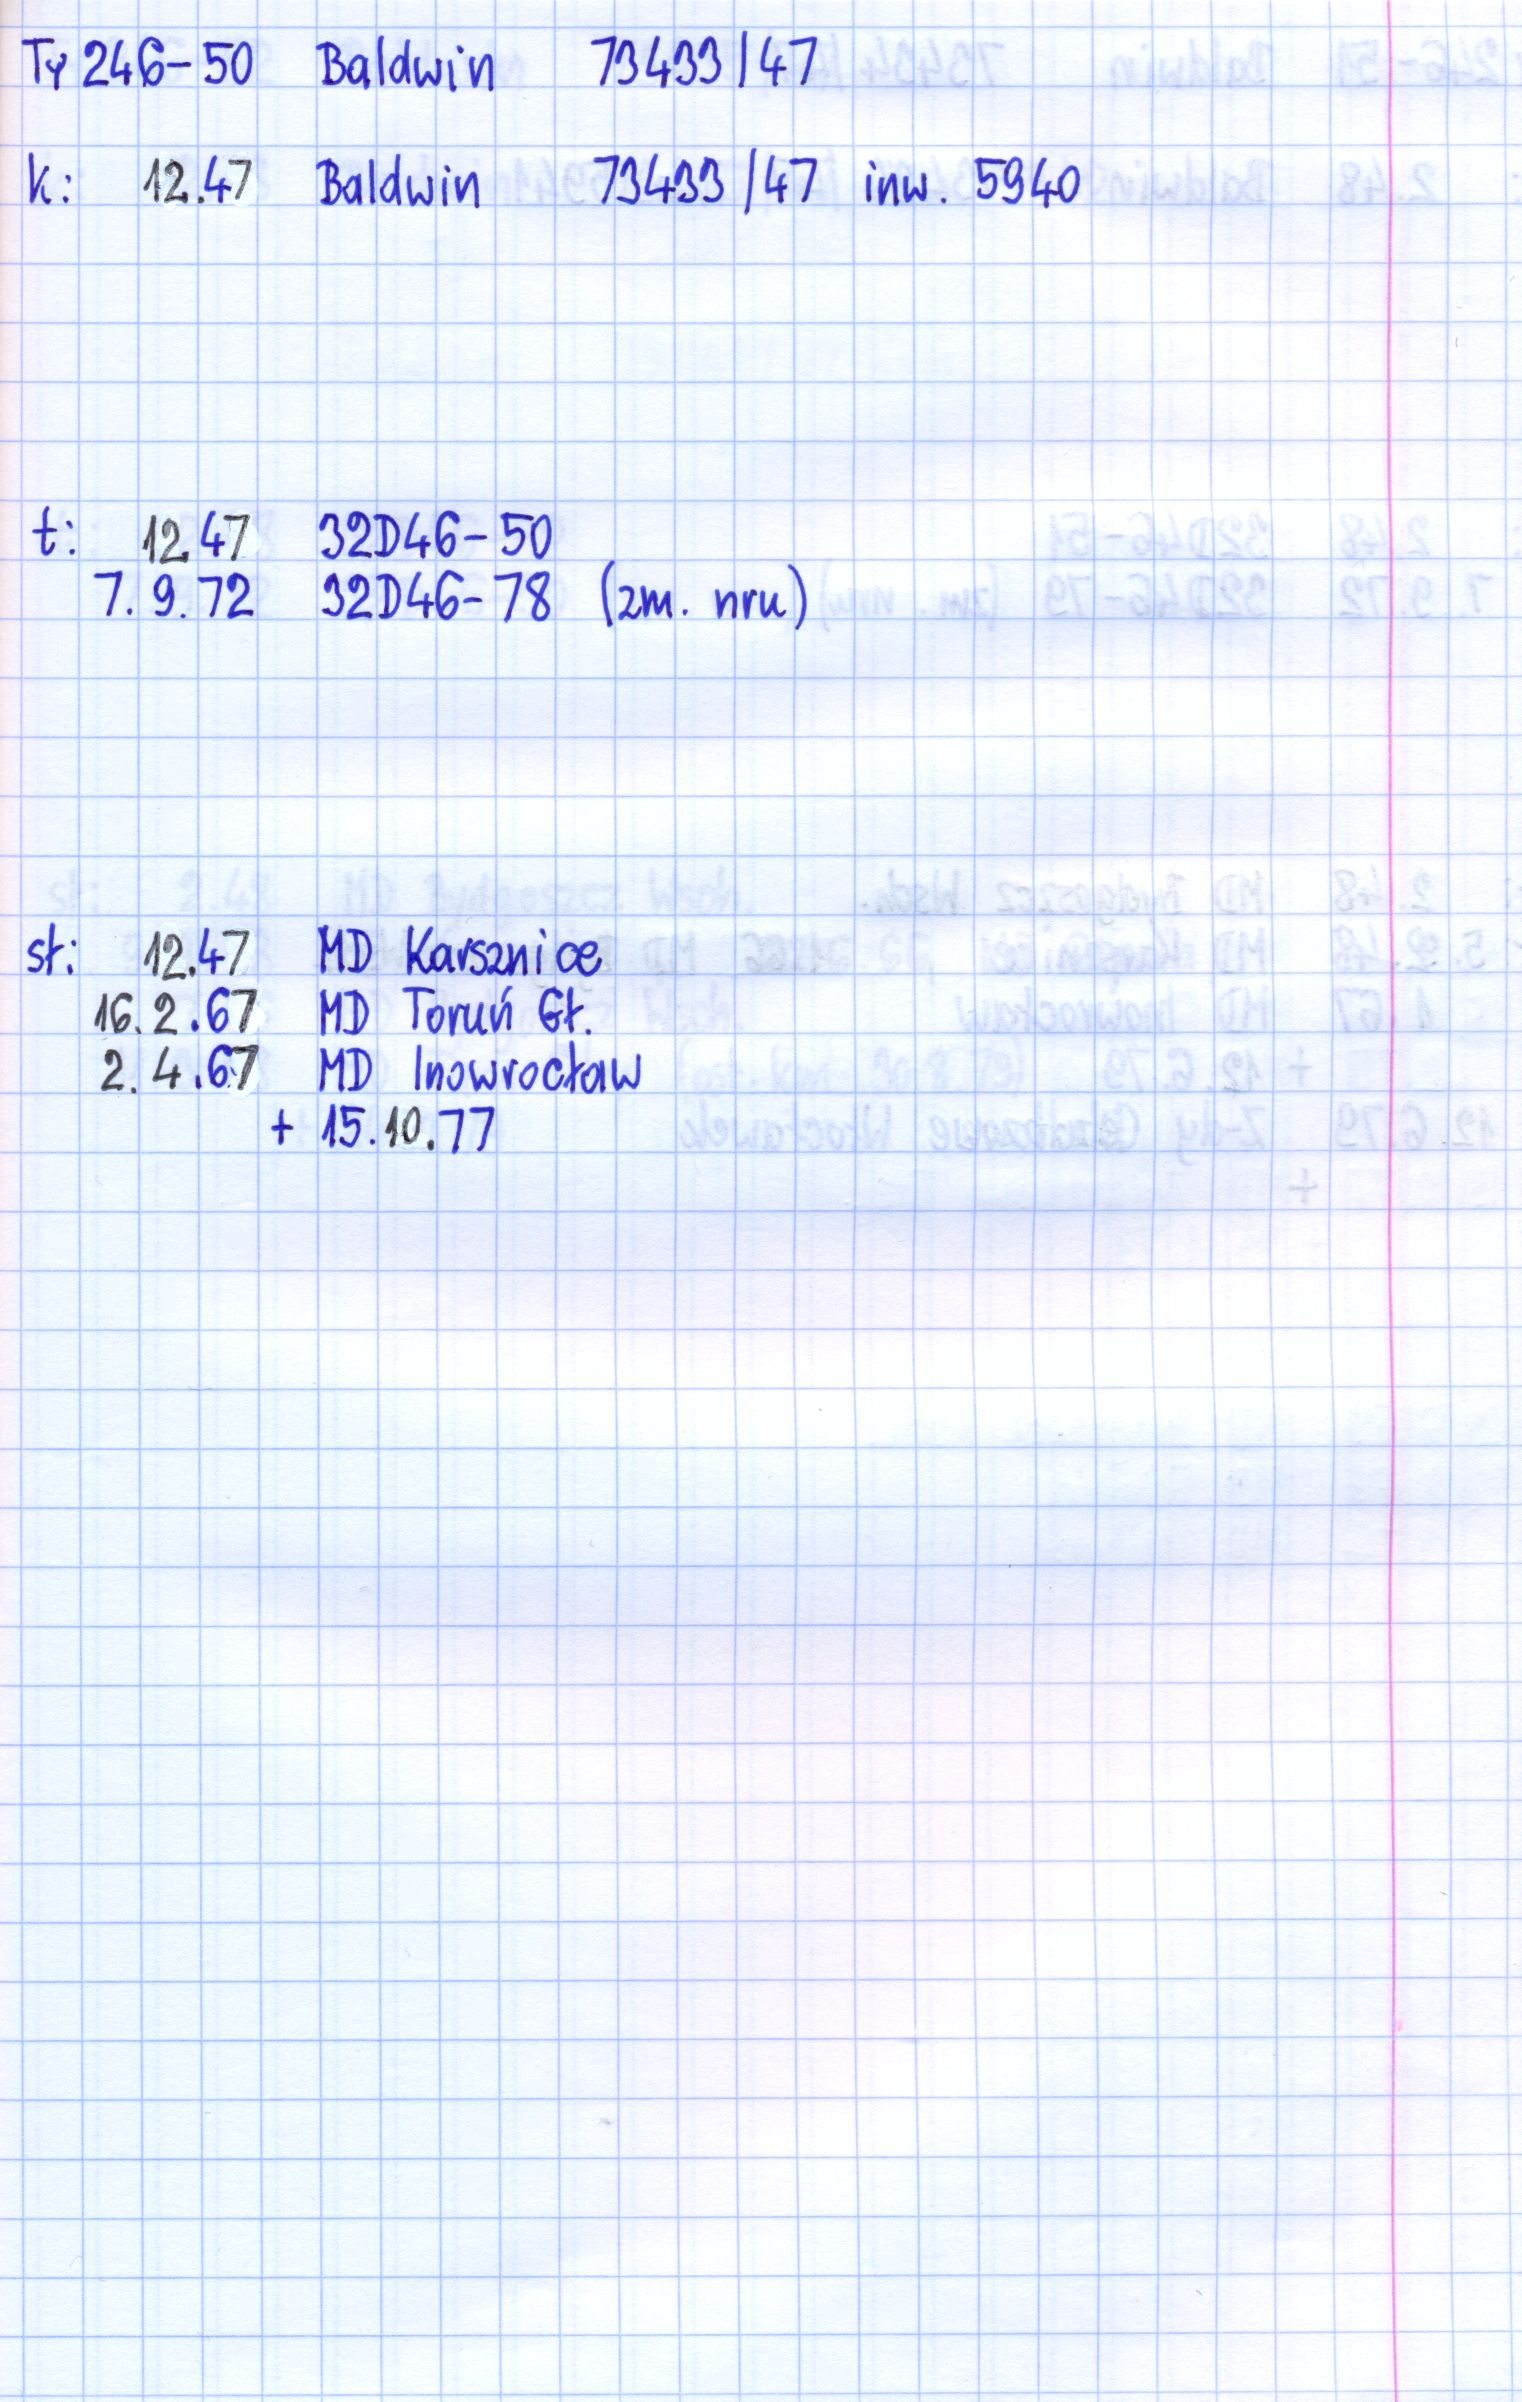 Ty246-50 Baldwin 73433/47
k: 12.47 Baldwin 73433/47 inw. 5940
t: 12.47 32D46-50
7.9.72 32D46-78 (zm. nru)
st: 12.47 MD Karsznice
16.2.67 MD Toruń Gł.
2.4.67 MD Inowrocław
+ 15.10.77